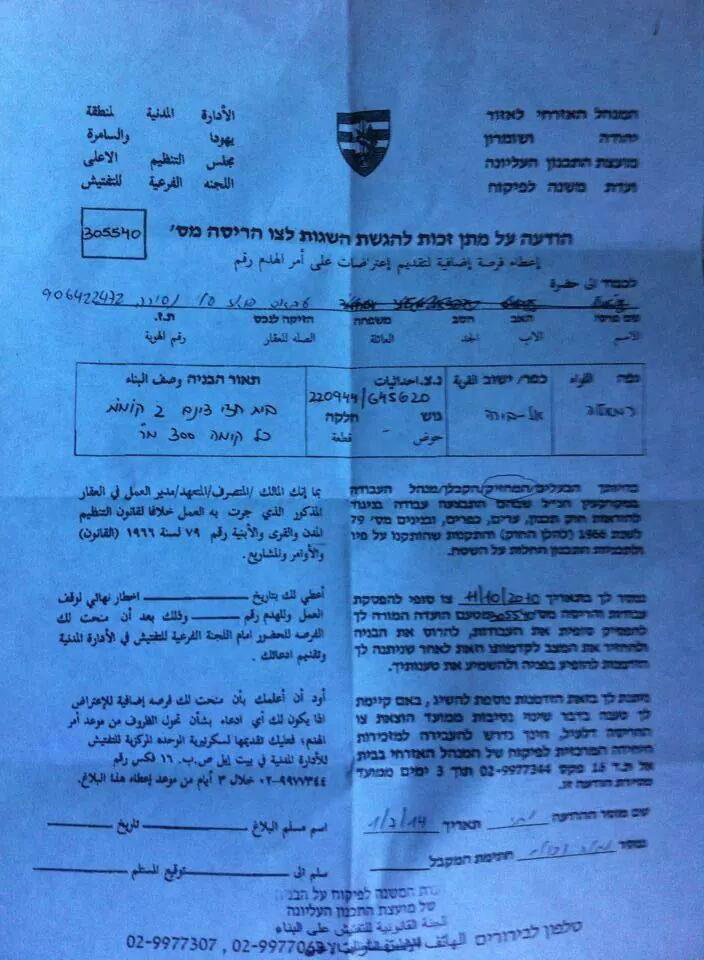 המנהל האזרחי לאזור
יהודה ושומרון
מועצת התכנון העליונה
ועדת משנה לפיקוח
الأدارة المدنية لمنطقة
يهودا والسامرة
مجلس التنظيم الاعلى
اللجنه الفرعية للتفتيش
הודעה על מתן זכות להגשת השגות לצו הריסה מס'
305540
إعطاء فرصة إضافية لتقديم إعتراضات على أمر الهدم رقم
לכבוד الى حضرة
906422472
שם פרטי האב הסב משפחה הזיקה לנכס ת.ז.
الأسم الاب الجد العائلة الصله للعقار رقم الهوية
נפה اللواء
כפר/ ישוב القرية
נ.צ. احداثيات
220944/645620
גוש חלקה
حوض قطعة
תאור הבניה وصف البناء
בית חצי צינם 2 קומות
כל קומה 300 מ"ר
רמאללה
אל-בירה
בהיותך הבעלים/המחזיק/הקבלן/מנהל העבודה
במקרקעין הנ"ל שבהם התבצעה עבודה בניגוד
להוראות חוק תכנון, ערים, כפרים, ובנינים מס' 79
לשנת 1966 (להלן החוק) והתקנות שהותקנו על פיו
ולתכניות התכנון החלות על השטח.
بما إنك المالك /المتصرف/المتعهد/مدير العمل في العقار
المذكور الذي جرت به العمل خلافا لقانون التنظيم
المدن والقرى والأبنية رقم ٧٩ لسنة ١٩٦٦ (القانون)
والأوامر والمشاريع.
נמסר לך בתאריך 11/10/2010 צו סופי להפסקת
עבודות והריסה מס' 305540 מטעם הועדה המורה לך
להפסיק סופית את העבודות, להרוס את הבניה
ולהחזיר את המצב לקדמותו וזאת לאחר שניתנה לך
הזדמנות להופיע בפניה ולהשמיע את טענותיך.
أعطي لك بتاريخ اخطار نهائي لوقف
العمل وللهدم رقم وذلك بعد أن منحت لك
الفرصه للحضور امام اللجنة الفرعية للتفتيش في الأدارة المدنية
وتقديم ادعائك.
ניתנת לך בזאת הזדמנות נוספת להשיג, באם קיימת
לך טענה בדבר שינוי נסיבות ממועד הוצאת צו
ההריסה דלעיל, הינך נדרש להעבירה למזכירות
היחידה המרכזית לפיקוח של המנהל האזרחי בבית
אל ת.ד 16 פקס 02-9977344 תוך 3 ימים ממועד
מסירת הודעה זו.
أود أن أعلمك بأن منحت لك فرصه إضافية للإعتراض
اذا يكون لك أي ادعاء بشأن تحول الظروف من موعد أمر
الهدم، فعليك تقديمها لسكرتيرية الوحده المركزية للتفتيش
للأدارة المدنية في بيت إيل ص.ب. ١٦ فكس رقم
٠٢-٩٩٧٧٣٤٤ خلال ٣ أيام من موعد إعطاء هذا البلاغ.
שם מוסר ההודעה תאריך 1/2/14
اسم مسلم البلاغ تاريخ
נמסר חתימת המקבל
سلم الى توقيع المستلم
ועדת המשנה לפיקוח על הבניה
של מועצת התכנון העליונה
لجنة القانونية للتفتيش على البناء
טלפון לבירורים الهاتف 02-9977063 , 02-9977307